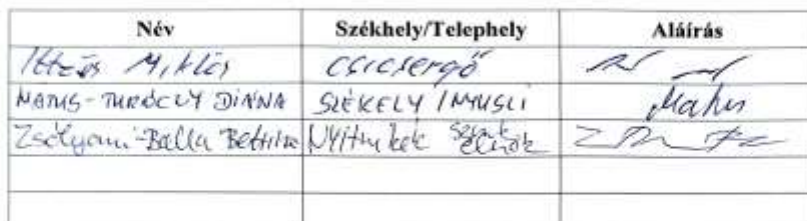 Név Székhely/Telephely Aláírás
Ittzés Miklós Csicsergő
MATUS-TURÓCZY DIÁNNA SZÉKELY Matus
Zsólyomi-Balla Bettina Nyitnikék elnök